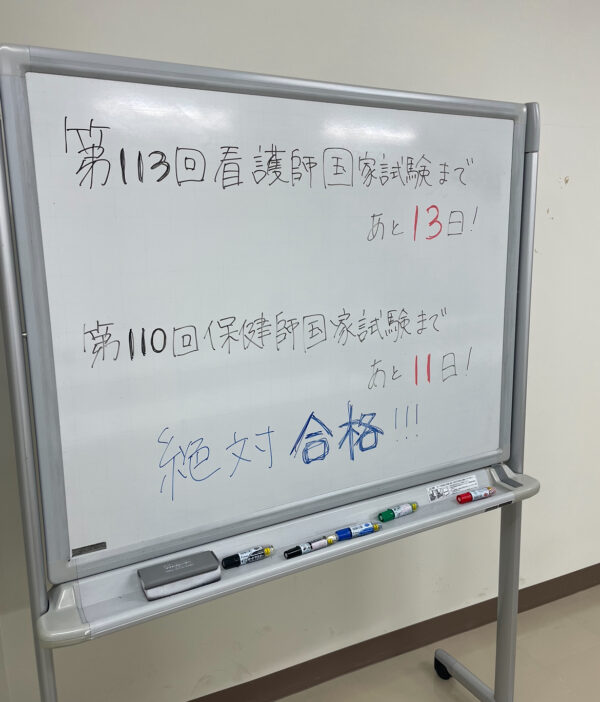 第113回看護師国家試験まで
あと13日!
第110回保健師国家試験まで
あと11日!
絶対合格!!!